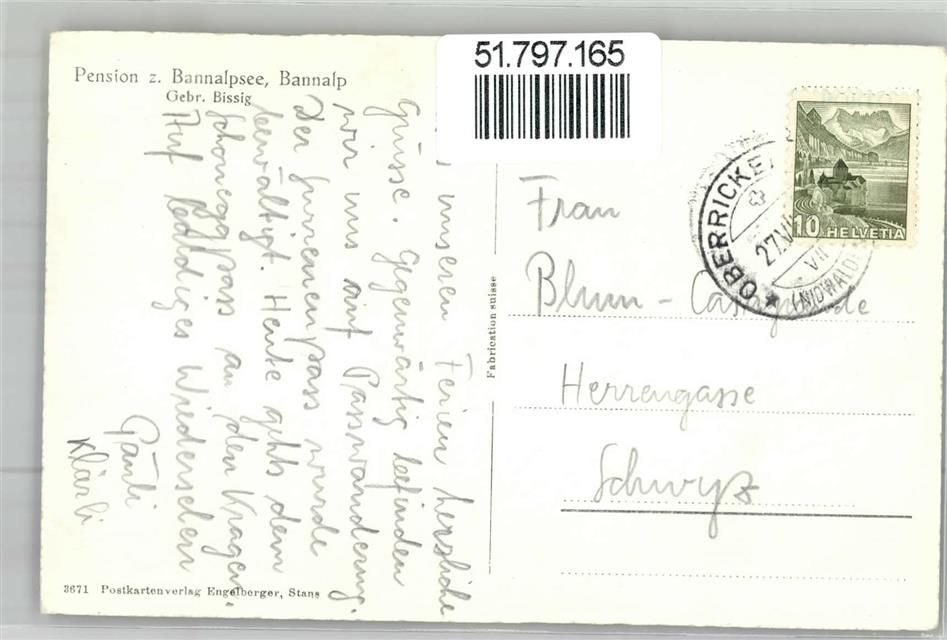 Pension z. Bannalpsee, Bannalp
Gebr. Bissig
51.797.165
unseren Ferien herzliche
Grüsse. Gegenwärtig befinden
wir uns auf Passwanderung.
Der Surenenpass wurde
bewältigt. Heute gehts dem
Schoneggpass an den Kragen.
Auf baldiges Wiedersehen
Pauli
Klärli
Fabrication suisse
Frau
Blum -
Herrengasse
Schwyz
OBERRICKE
27.VII
VII
(NIDWALD
10 HELVETIA
3671 Postkartenverlag Engelberger, Stans